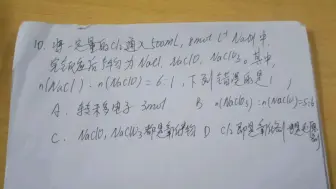 10. 将一定量的Cl₂通入500mL, 8mol·L⁻¹ NaOH中,
完全反应后 均为 NaCl、NaClO、NaClO₃。其中,
n(NaCl):n(NaClO)=6:1, 下列错误的是( )
A. 转移电子 3mol B n(NaClO₃):n(NaCl)=5:6
C. NaClO, NaClO₃都是氧化产物 D Cl₂ 即是氧化剂